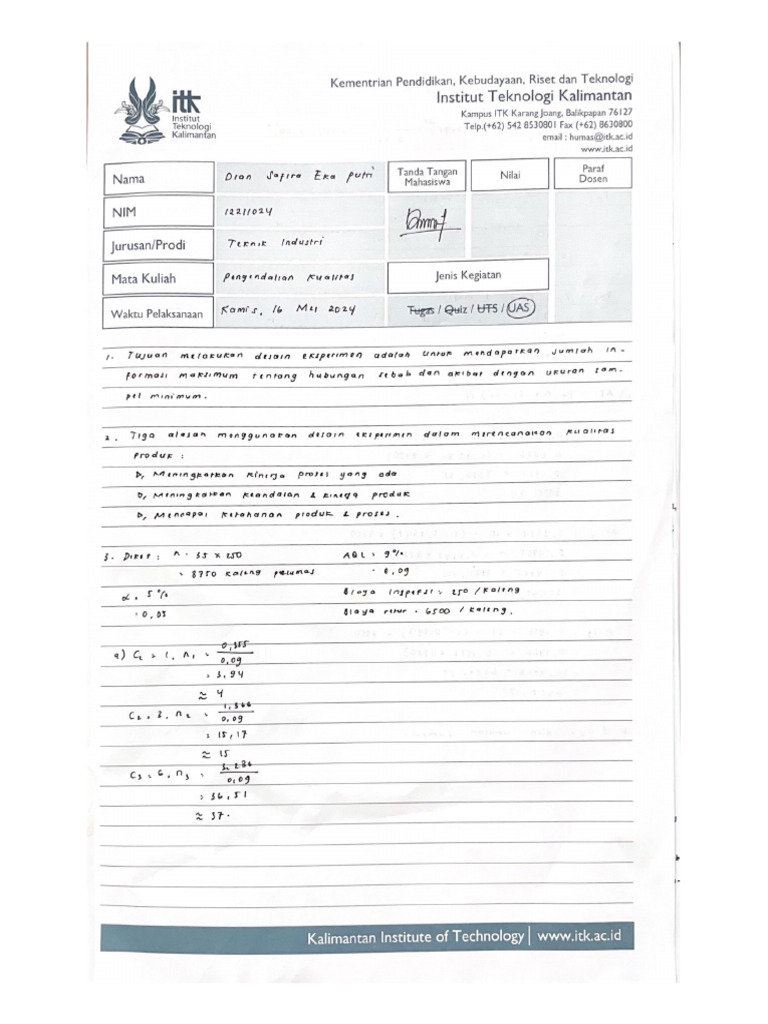 Kementrian Pendidikan, Kebudayaan, Riset dan Teknologi
Institut Teknologi Kalimantan
Kampus ITK Karang Joang, Balikpapan 76127
Telp.(+62) 542 8530801 Fax (+62) 8630800
email : humas@itk.ac.id
www.itk.ac.id
itk
Institut
Teknologi
Kalimantan
Nama Dian Safira Eka Putri
Tanda Tangan Mahasiswa
Nilai
Paraf Dosen
NIM 12211024
Jurusan/Prodi Teknik Industri
Mata Kuliah Pengendalian Kualitas
Jenis Kegiatan
Waktu Pelaksanaan Kamis, 16 Mei 2024
Tugas / Quiz / UTS / UAS
1. Tujuan melakukan desain eksperimen adalah untuk mendapatkan jumlah in-
formasi maksimum tentang hubungan sebab dan akibat dengan ukuran sam-
pel minimum.
2. Tiga alasan menggunakan desain eksperimen dalam merencanakan kualitas
produk :
Meningkatkan kinerja proses yang ada
Meningkatkan keandalan & kinerja produk
Mencapai ketahanan produk & proses.
3. Diket : n = 35 x 250 AQL = 9%
= 8750 kaleng pelumas = 0,09
α = 5% Biaya inspeksi = 250 /kaleng
= 0,05 Biaya retur = 6500 /kaleng.
a) C₁ = 1, n₁ = 0,355
0,09
= 3,94
≈ 4
C₂ = 3, n₂ = 1,366
0,09
= 15,17
≈ 15
C₃ = 6, n₃ = 3,286
0,09
= 36,51
≈ 37.
Kalimantan Institute of Technology | www.itk.ac.id